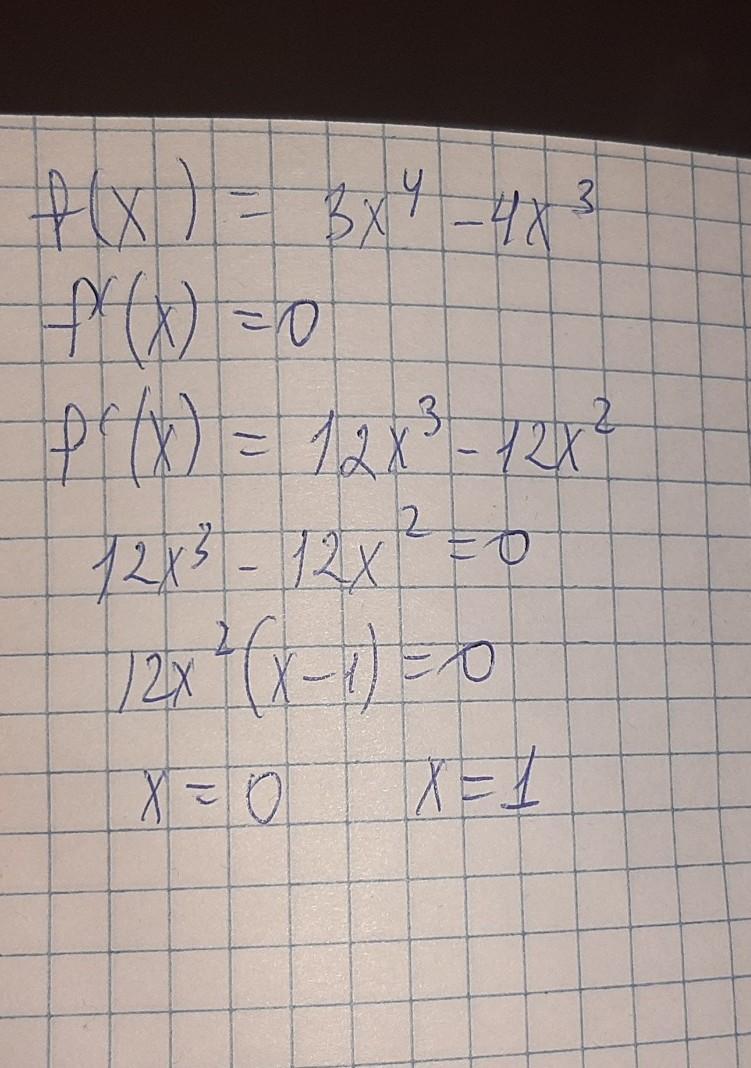 f(x) = 3x⁴ - 4x³
f'(x) = 0
f'(x) = 12x³ - 12x²
12x³ - 12x² = 0
12x²(x-1) = 0
x = 0 x = 1